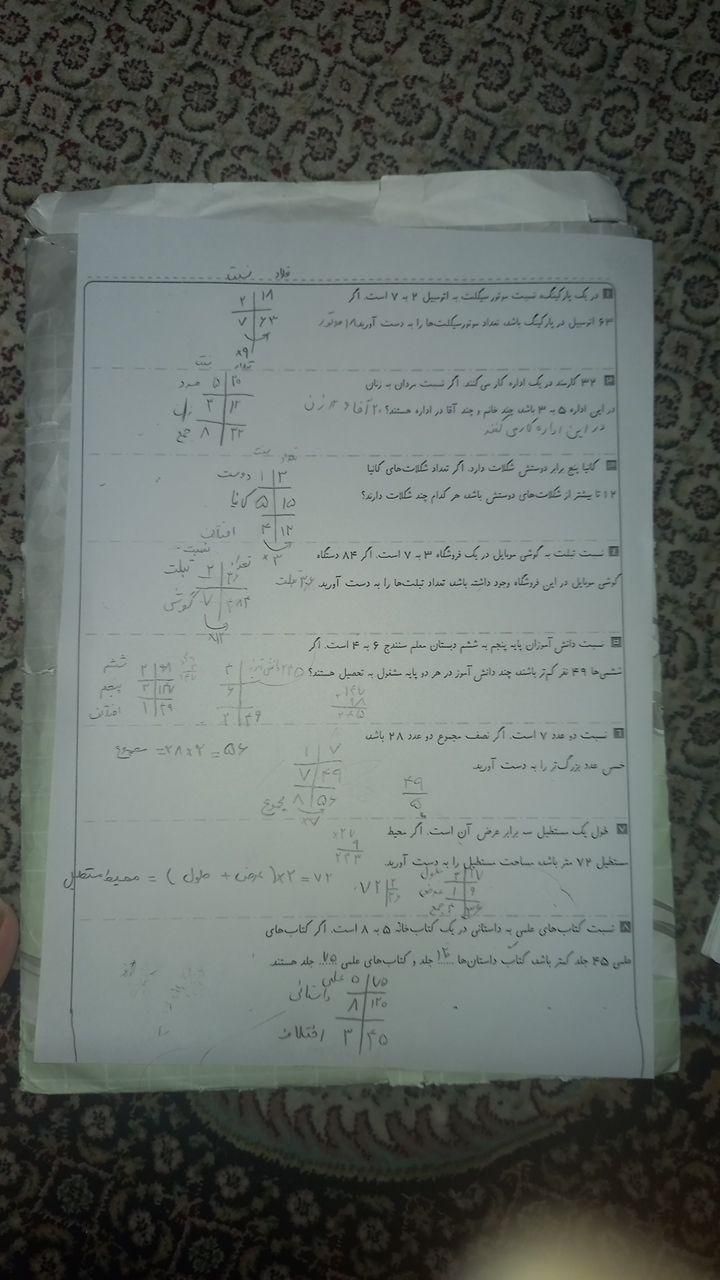 تعداد نسبت
۱ در یک پارکینگ، نسبت موتورسیکلت به اتومبیل ۲ به ۷ است. اگر
۲ | ۱۸
۶۳ اتومبیل در پارکینگ باشد، تعداد موتورسیکلت‌ها را به دست آورید. ۱۸ موتور
۷ | ۶۳
×۹
۲ ۳۲ کارمند در یک اداره کار می‌کنند. اگر نسبت مردان به زنان
۵ | ۲۰
در این اداره ۵ به ۳ باشد، چند خانم و چند آقا در اداره هستند؟ ۲۰ آقا و ۱۲ زن
۳ | ۱۲
در این اداره کار می کنند
جمع ۸ | ۳۲
۳ کانیا پنج برابر دوستش شکلات دارد. اگر تعداد شکلات‌های کانیا
دوست ۱ | ۳
۱۲ تا بیشتر از شکلات‌های دوستش باشد، هر کدام چند شکلات دارند؟
کانیا ۵ | ۱۵
اختلاف ۴ | ۱۲
×۳
۴ نسبت تبلت به گوشی موبایل در یک فروشگاه ۳ به ۷ است. اگر ۸۴ دستگاه
نسبت تعداد
تبلت
گوشی موبایل در این فروشگاه وجود داشته باشد، تعداد تبلت‌ها را به دست آورید. ۳۶ تبلت
گوشی ۷ | ۸۴
×۱۲
۵ نسبت دانش آموزان پایه پنجم به ششم دبستان معلم سنندج ۶ به ۴ است. اگر
ششی‌ها ۴۹ نفر کم‌تر باشند، چند دانش آموز در هر دو پایه مشغول به تحصیل هستند؟
ششم ۲ | ۹۸
پنجم ۳ | ۱۴۷
اختلاف ۱ | ۴۹
۱۴۷
۹۸
۲۴۵
۶ نسبت دو عدد ۷ است. اگر نصف مجموع دو عدد ۲۸ باشد،
۱ | ۷
مجموع =۲۸×۲=۵۶
خمس عدد بزرگ‌تر را به دست آورید.
۷ | ۴۹
مجموع ۸ | ۵۶
×۷
۴۹
۵
۷ طول یک مستطیل سه برابر عرض آن است. اگر محیط
×۲۷
۹
۲۴۳
مستطیل ۷۲ متر باشد، مساحت مستطیل را به دست آورید.
محیط مستطیل = (طول + عرض)×۲=۷۲
طول ۳ | ۲۷
عرض ۱ | ۹
جمع ۴ | ۳۶
۷۲ | ۲
۳۶
۸ نسبت کتاب‌های علمی به داستانی در یک کتاب‌خانه ۵ به ۸ است. اگر کتاب‌های
علمی ۴۵ جلد کمتر باشد، کتاب داستان‌ها ۱۲۰ جلد و کتاب‌های علمی ۷۵ جلد هستند
علمی ۵ | ۷۵
داستانی ۸ | ۱۲۰
اختلاف ۳ | ۴۵